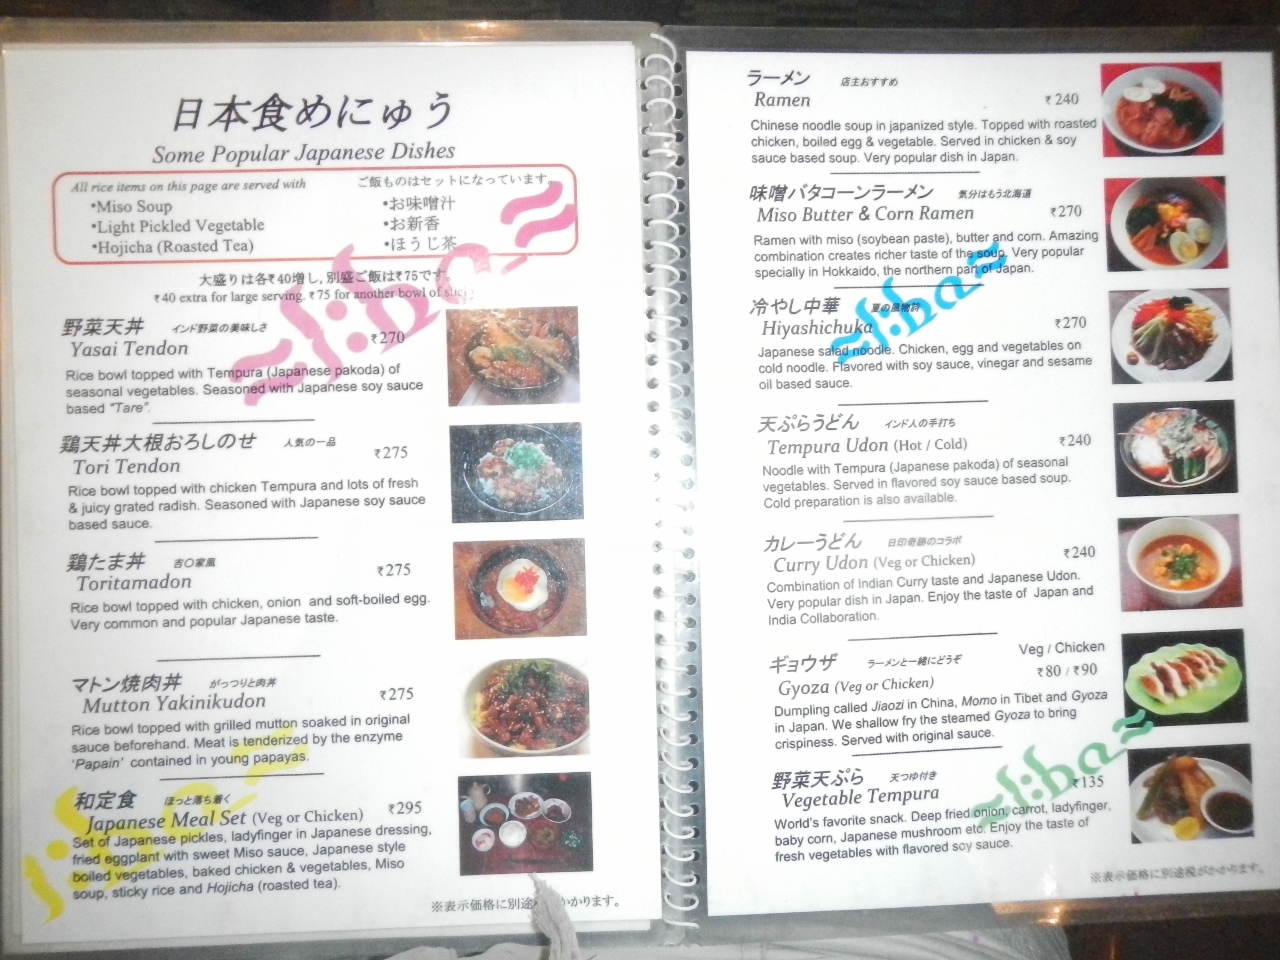 日本食めにゅう
Some Popular Japanese Dishes
All rice items on this page are served with
•Miso Soup
•Light Pickled Vegetable
•Hojicha (Roasted Tea)
ご飯ものはセットになっています。
•お味噌汁
•お新香
•ほうじ茶
大盛りは各₹40増し, 別盛ご飯は₹75です。
₹40 extra for large serving. ₹75 for another bowl of
野菜天丼 インド野菜の美味しさ
Yasai Tendon ₹270
Rice bowl topped with Tempura (Japanese pakoda) of
seasonal vegetables. Seasoned with Japanese soy sauce
based "Tare".
鶏天丼大根おろしのせ 人気の一品
Tori Tendon ₹275
Rice bowl topped with chicken Tempura and lots of fresh
& juicy grated radish. Seasoned with Japanese soy sauce
based sauce.
鶏たま丼 吉〇家風
Toritamadon ₹275
Rice bowl topped with chicken, onion and soft-boiled egg.
Very common and popular Japanese taste.
マトン焼肉丼 がっつりと肉丼
Mutton Yakinikudon ₹275
Rice bowl topped with grilled mutton soaked in original
sauce beforehand. Meat is tenderized by the enzyme
'Papain' contained in young papayas.
和定食 ほっと落ち着く
Japanese Meal Set (Veg or Chicken) ₹295
Set of Japanese pickles, ladyfinger in Japanese dressing,
fried eggplant with sweet Miso sauce, Japanese style
boiled vegetables, baked chicken & vegetables, Miso
soup, sticky rice and Hojicha (roasted tea).
※表示価格に別途 かかります。
ラーメン 店主おすすめ
Ramen ₹240
Chinese noodle soup in japanized style. Topped with roasted
chicken, boiled egg & vegetable. Served in chicken & soy
sauce based soup. Very popular dish in Japan.
味噌バタコーンラーメン 気分はもう北海道
Miso Butter & Corn Ramen ₹270
Ramen with miso (soybean paste), butter and corn. Amazing
combination creates richer taste of the soup. Very popular
specially in Hokkaido, the northern part of Japan.
冷やし中華 夏の風物詩
Hiyashichuka ₹270
Japanese salad noodle. Chicken, egg and vegetables on
cold noodle. Flavored with soy sauce, vinegar and sesame
oil based sauce.
天ぷらうどん インド人の手打ち
Tempura Udon (Hot / Cold) ₹240
Noodle with Tempura (Japanese pakoda) of seasonal
vegetables. Served in flavored soy sauce based soup.
Cold preparation is also available.
カレーうどん 日印奇跡のコラボ
Curry Udon (Veg or Chicken) ₹240
Combination of Indian Curry taste and Japanese Udon.
Very popular dish in Japan. Enjoy the taste of Japan and
India Collaboration.
ギョウザ ラーメンと一緒にどうぞ Veg / Chicken
Gyoza (Veg or Chicken) ₹80 / ₹90
Dumpling called Jiaozi in China, Momo in Tibet and Gyoza
in Japan. We shallow fry the steamed Gyoza to bring
crispiness. Served with original sauce.
野菜天ぷら 天つゆ付き
Vegetable Tempura ₹135
World's favorite snack. Deep fried onion, carrot, ladyfinger,
baby corn, Japanese mushroom etc. Enjoy the taste of
fresh vegetables with flavored soy sauce.
※表示価格に別途税がかかります。